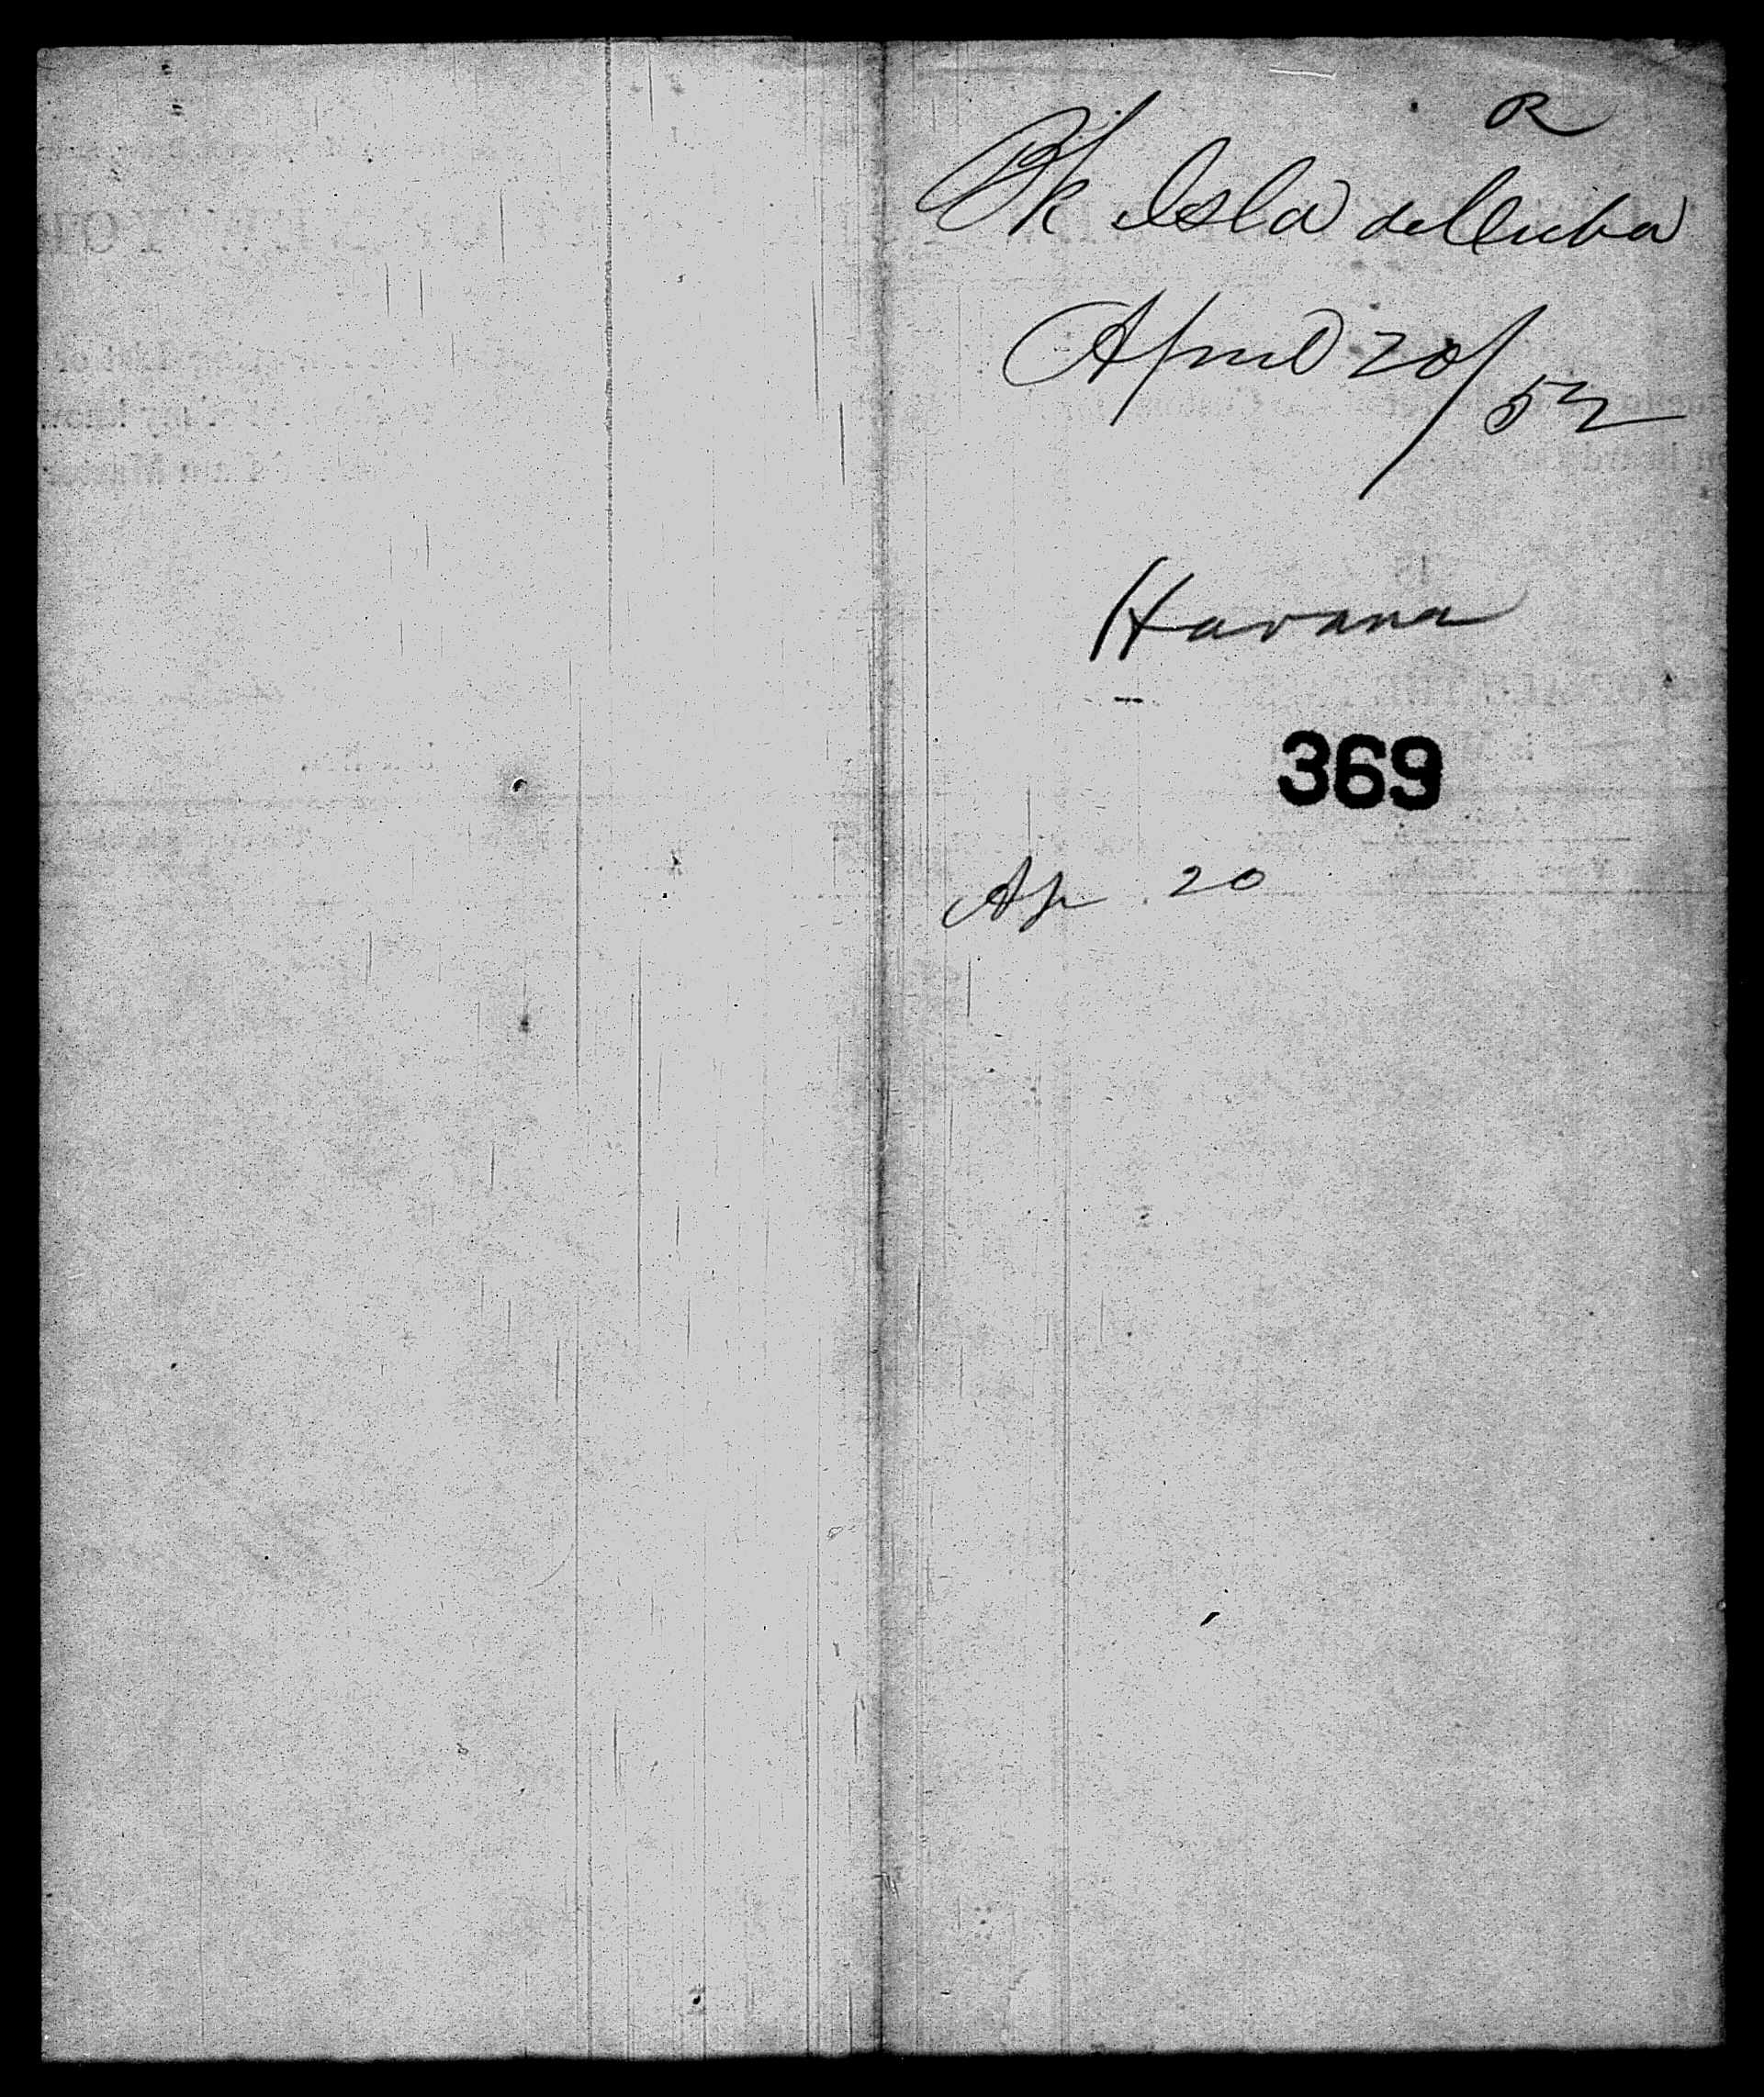 R
Bk Isla de Cuba
April 20/52
Havana
369
Ap 20